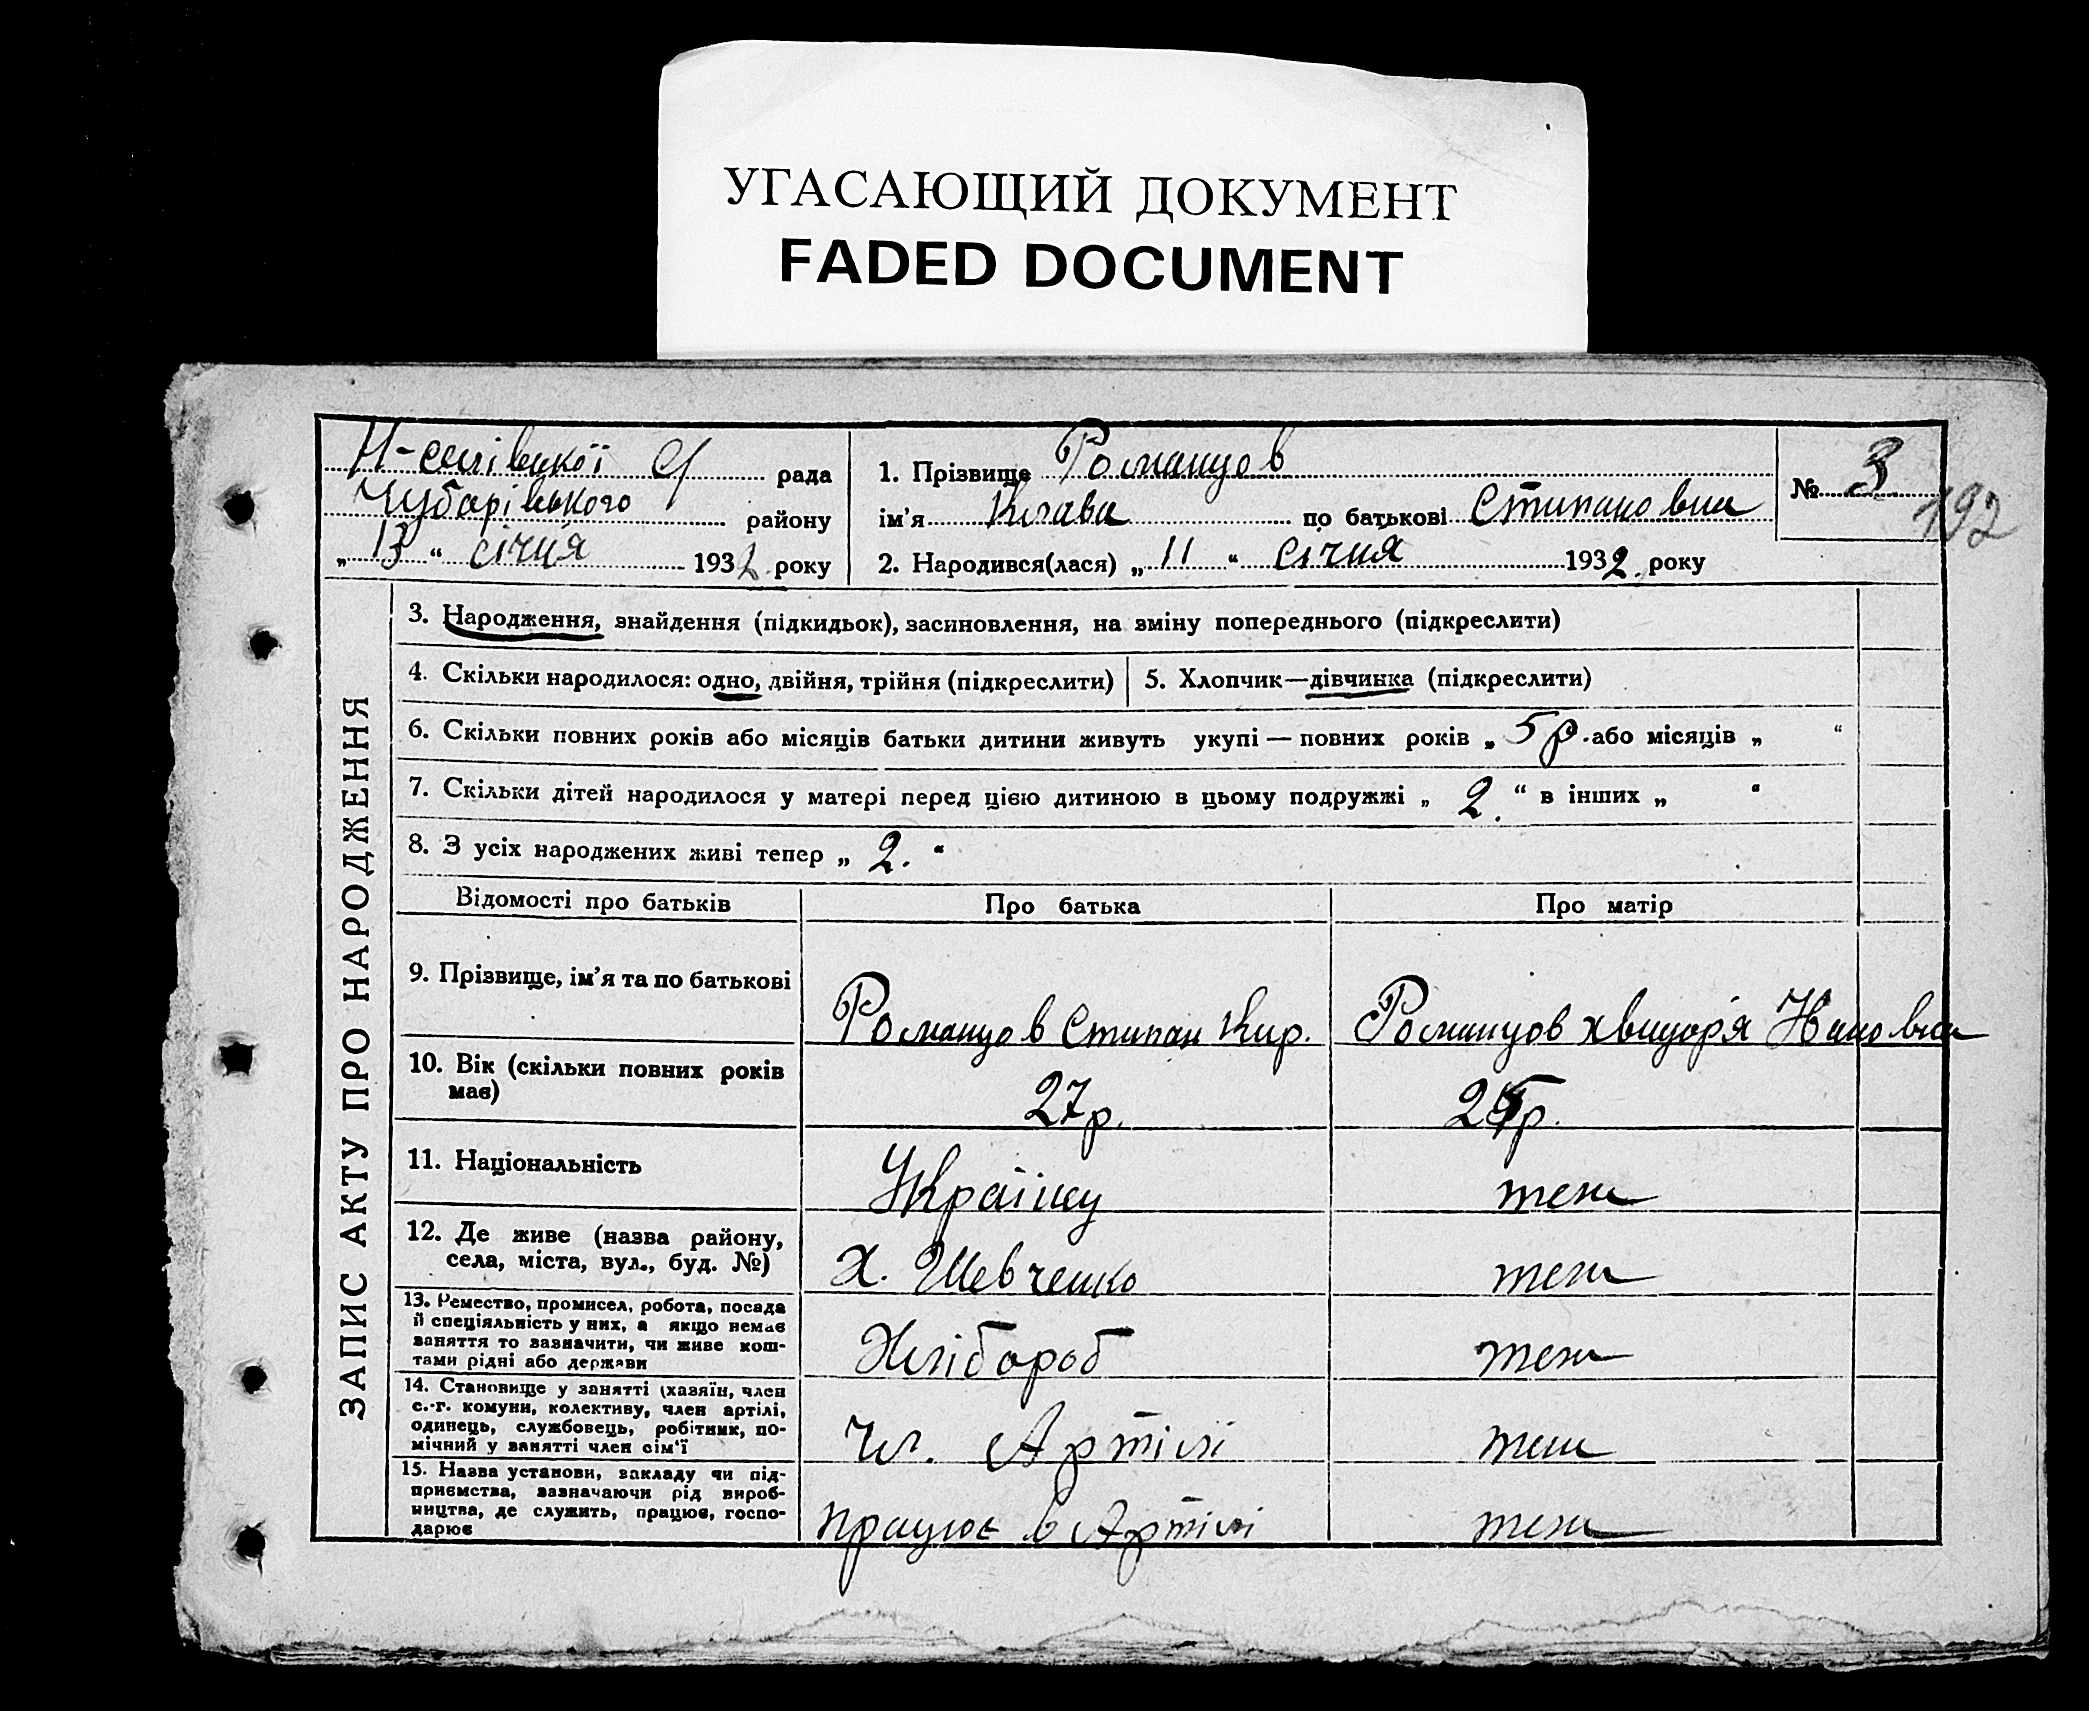 УГАСАЮЩИЙ ДОКУМЕНТ
FADED DOCUMENT
Н-селівської С/ рада
Чубарівського району
„ 13 “ січня 1932 року
1. Прізвище Романцов
ім’я Клава по батькові Стипановна
2. Народився(лася) „ 11 “ січня 1932. року
№ 3
192
ЗАПИС АКТУ ПРО НАРОДЖЕННЯ
3. Народження, знайдення (підкидьок), засиновлення, на зміну попереднього (підкреслити)
4. Скільки народилося: одно, двійня, трійня (підкреслити) 5. Хлопчик—дівчинка (підкреслити)
6. Скільки повних років або місяців батьки дитини живуть укупі — повних років „ 5 р. або місяців „ “
7. Скільки дітей народилося у матері перед цією дитиною в цьому подружжі „ 2. “ в інших „ “
8. З усіх народжених живі тепер „ 2. “
Відомості про батьків Про батька Про матір
9. Прізвище, ім’я та по батькові
Романцов Стипан Кир. Романцов
10. Вік (скільки повних років
має)
27 р. 25 р.
11. Національність
Українц теж
12. Де живе (назва району,
села, міста, вул., буд. №)
Х. Шевченко теж
13. Ремество, промисел, робота, посада
й спеціяльність у них, а якщо немає
заняття то зазначити, чи живе кош-
тами рідні або держави
Хлібороб теж
14. Становище у занятті (хазяїн, член
с.-г. комуни, колективу, член артілі,
одинець, службовець, робітник, по-
мічний у занятті член сім’ї
Чл. Артілі теж
15. Назва установи, закладу чи під-
приємства, зазначаючи рід вироб-
ництва, де служить, працює, госпо-
дарює
працює в Артілі теж